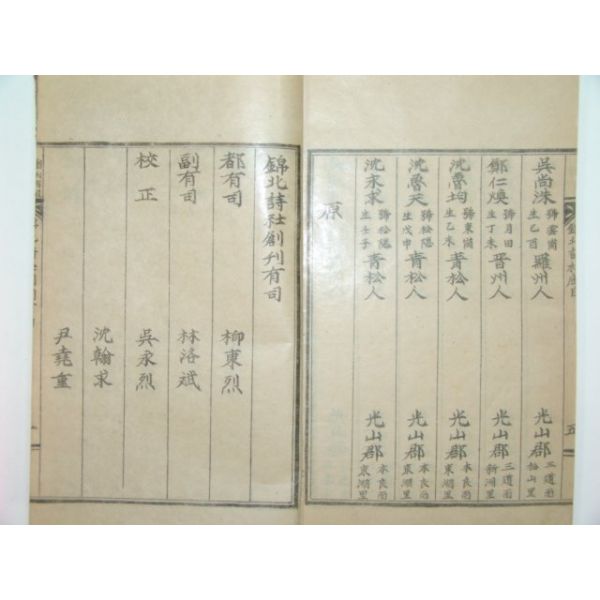 吳尚洙 號雲崗 生乙酉 羅州人 光山郡 三道面 松山里
鄭仁煥 號月田 生丁未 晋州人 光山郡 三道面 新洞里
沈魯均 號東崗 生乙未 靑松人 光山郡 本良面 東湖里
沈魯天 號松陽 生戊申 靑松人 光山郡 本良面 東湖里
沈永求 號松隱 生壬子 靑松人 光山郡 本良面 東湖里
原
五
錦北詩社創刊有司
都有司 柳東烈
副有司 林洛斌
校正 吳永烈
沈翰求
尹堯重